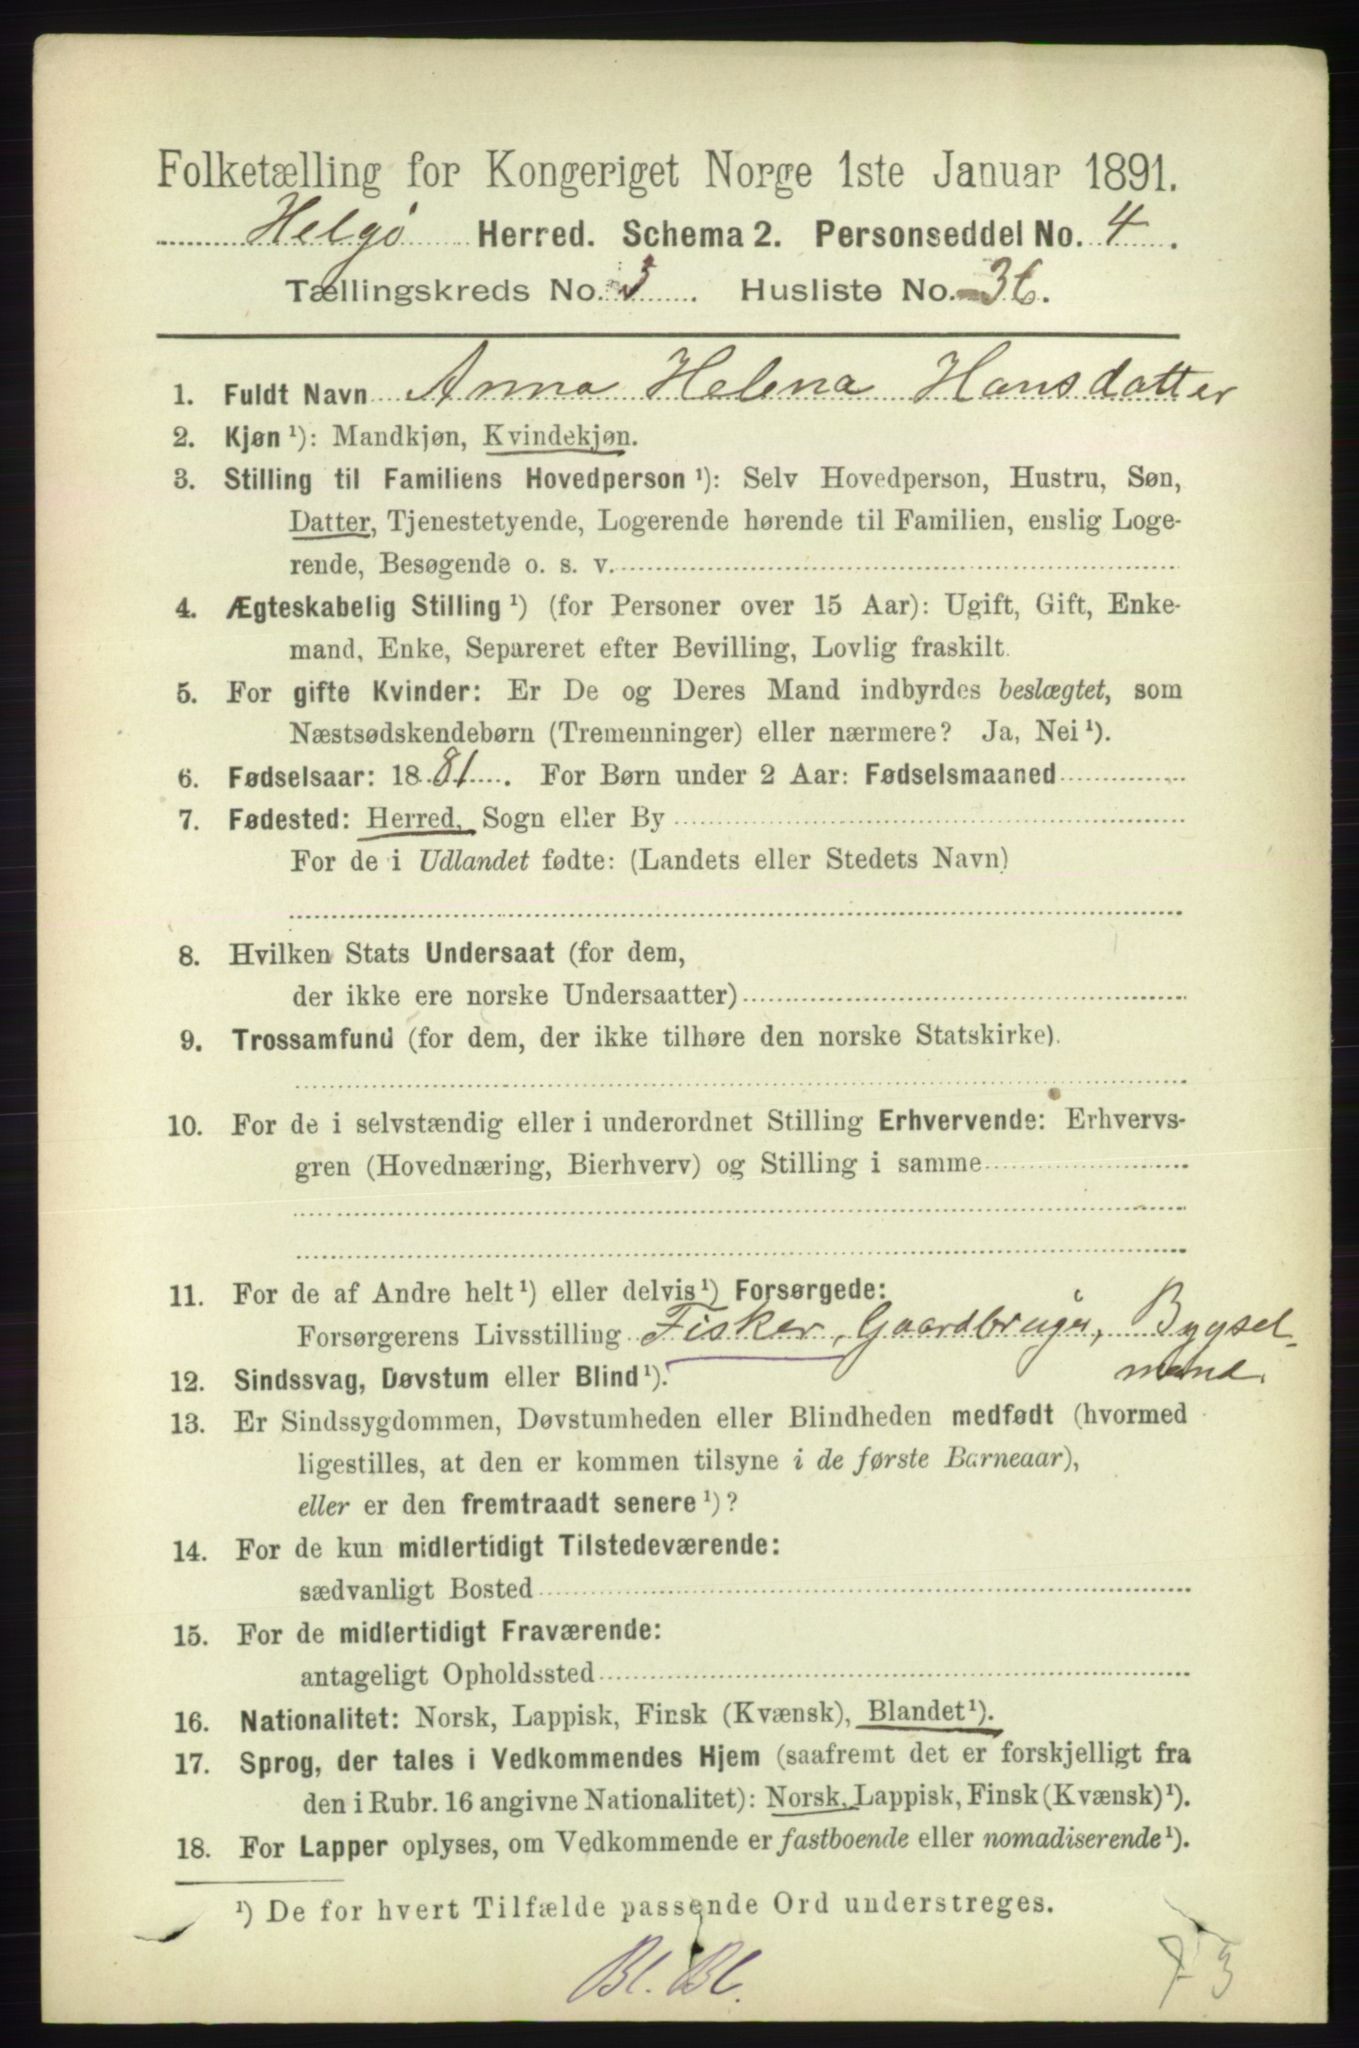 Folketælling for Kongeriget Norge 1ste Januar 1891.
Helgø Herred. Schema 2. Personseddel No. 4.
Tællingskreds No. 3. Husliste No. 36.
1. Fuldt Navn Anna Helena Hansdatter
2. Kjøn ¹): Mandkjøn, Kvindekjøn.
3. Stilling til Familiens Hovedperson ¹): Selv Hovedperson, Hustru, Søn,
Datter, Tjenestetyende, Logerende hørende til Familien, enslig Loge-
rende, Besøgende o. s. v.
4. Ægteskabelig Stilling ¹) (for Personer over 15 Aar): Ugift, Gift, Enke-
mand, Enke, Separeret efter Bevilling, Lovlig fraskilt.
5. For gifte Kvinder: Er De og Deres Mand indbyrdes beslægtet, som
Næstsødskendebørn (Tremenninger) eller nærmere? Ja, Nei ¹).
6. Fødselsaar: 1881. For Børn under 2 Aar: Fødselsmaaned
7. Fødested: Herred, Sogn eller By
For de i Udlandet fødte: (Landets eller Stedets Navn)
8. Hvilken Stats Undersaat (for dem,
der ikke ere norske Undersaatter)
9. Trossamfund (for dem, der ikke tilhøre den norske Statskirke).
10. For de i selvstændig eller i underordnet Stilling Erhvervende: Erhvervs-
gren (Hovednæring, Bierhverv) og Stilling i samme
11. For de af Andre helt ¹) eller delvis ¹) Forsørgede:
Forsørgerens Livsstilling Fisker, Gaardbruger, Bygsel-
mand.
12. Sindssvag, Døvstum eller Blind ¹).
13. Er Sindssygdommen, Døvstumheden eller Blindheden medfødt (hvormed
ligestilles, at den er kommen tilsyne i de første Barneaar),
eller er den fremtraadt senere ¹)?
14. For de kun midlertidigt Tilstedeværende:
sædvanligt Bosted
15. For de midlertidigt Fraværende:
antageligt Opholdssted
16. Nationalitet: Norsk, Lappisk, Finsk (Kvænsk), Blandet ¹).
17. Sprog, der tales i Vedkommendes Hjem (saafremt det er forskjelligt fra
den i Rubr. 16 angivne Nationalitet): Norsk, Lappisk, Finsk (Kvænsk) ¹).
18. For Lapper oplyses, om Vedkommende er fastboende eller nomadiserende ¹).
¹) De for hvert Tilfælde passende Ord understreges.
Bl. Bl.
73